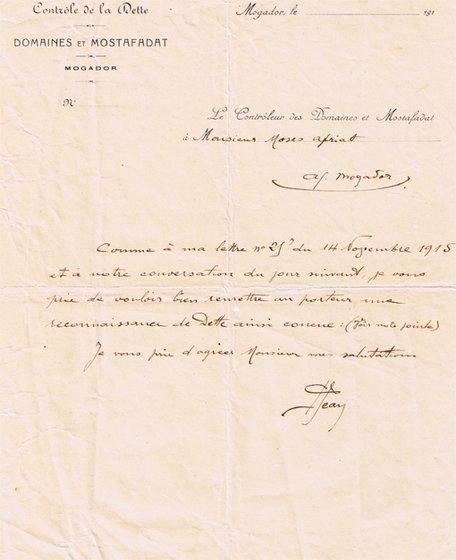 Contrôle de la Dette
DOMAINES ET MOSTAFADAT
MOGADOR
N°
Mogador, le 191
Le Contrôleur des Domaines et Mostafadat
à Monsieur Moses Afriat
Mogador
Comme à ma lettre n° du 14 Novembre 1915
et à notre conversation du jour suivant, je vous
prie de vouloir bien remettre au porteur une
reconnaissance de Dette ainsi conçue : (Voir note jointe)
Je vous prie d'agréer Monsieur mes salutations